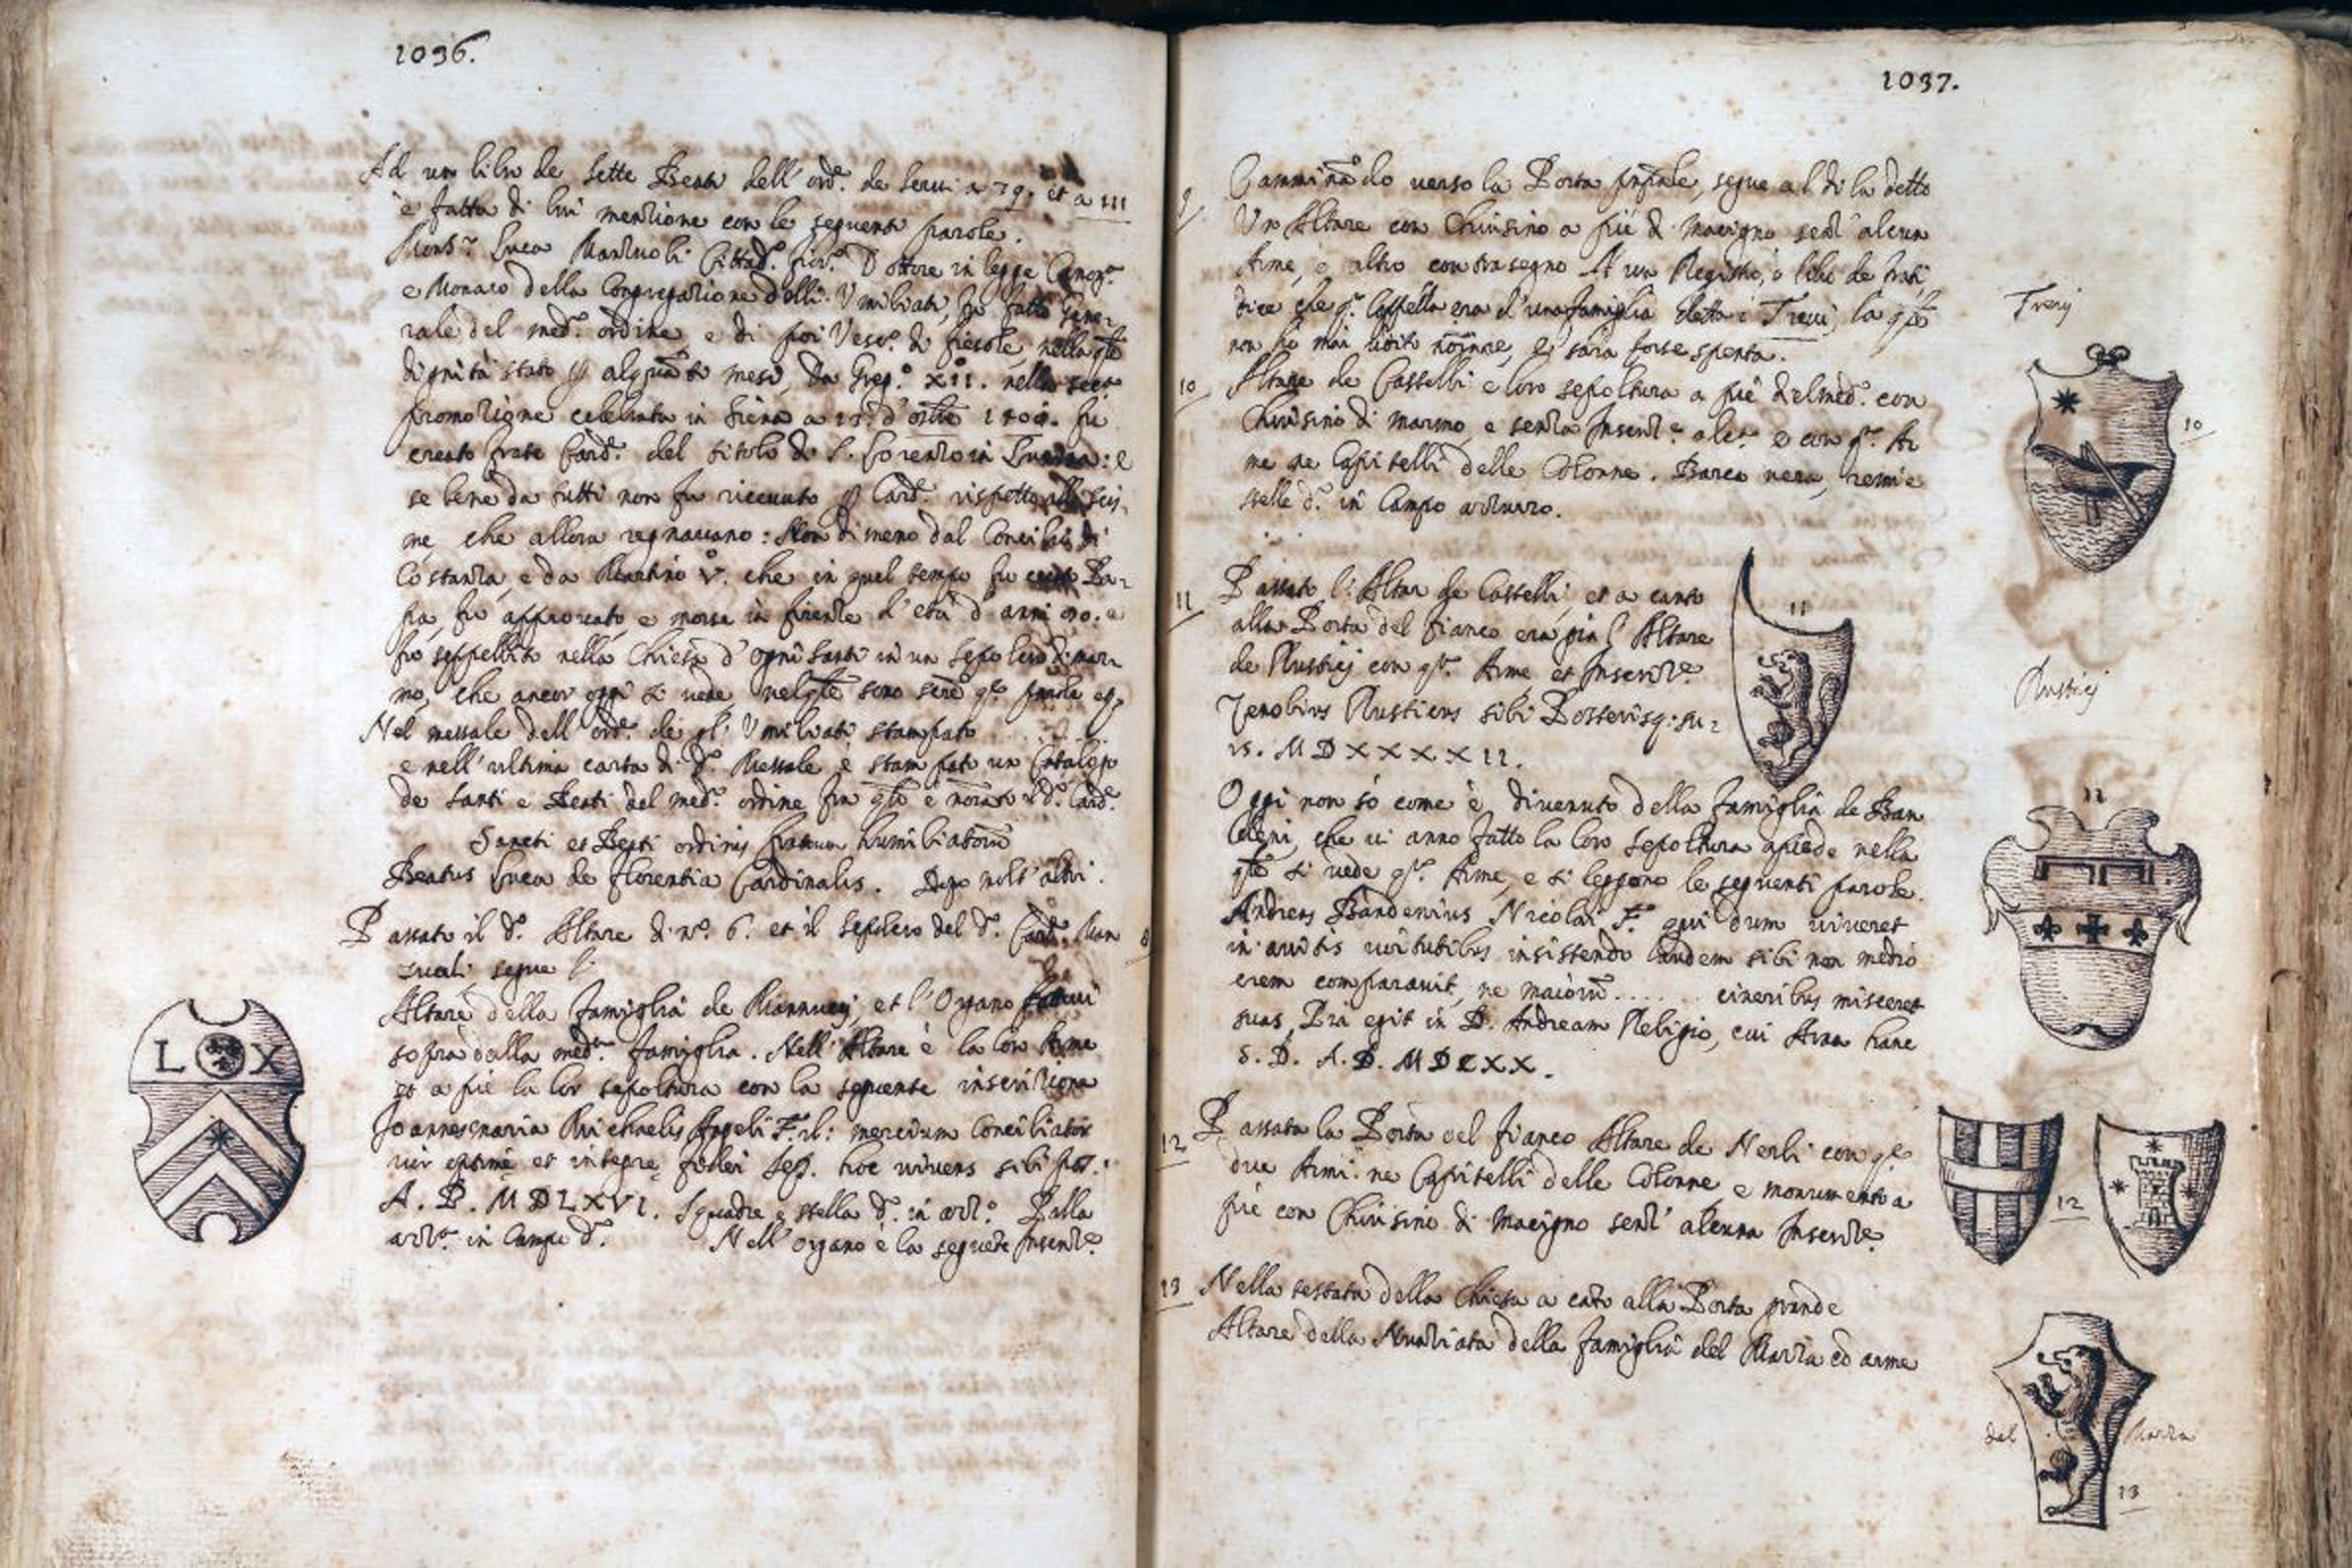 1036.
Ad un libro de sette Beati dell' ord.e de servi a 79. et a 111
è fatta di lui mentione con le seguenti parole.
Mons.r Luca Manzuoli Cittad.o fior.o Dottore in legge Canon.ca
e Monaco della Congregatione delli Umiliati, fu fatto Gene-
rale del med.o ordine, e di poi Vesc.o di fiesole, nella qle
dignità stato p alquāti mesi, Da Greg.o XII. nella seca
promotione celebrata in Siena a d' ottre fu
creato prete Card.e del titolo di S. Lorenzo in : e
se bene da tutti non fu ricevuto p Card.e rispetto alli scis-
me che allora regnavano: Non di meno dal Concilio di
Costanza, e da Martino V.o che in quel tempo fu Pa-
pa, fu approvato e morse in firenze d' età d' anni e
fu seppellito nella Chiesa d' Ogni Santi in un sepolcro di mar-
mo, che ancor oggi si vede, nel qle sono q.e parole
Nel messale dell' ord.e de gl' Umiliati stampato
e nell' ultima carta di d.o Messale è stampato un Catalogo
de Santi e Beati del med.o ordine fra qli è notato il d.o Card.e
Sancti et Beati ordinis fratrum humiliatorū
Beatus Luca de florentia Cardinalis. Dopo molt' altri.
Passato il d.o Altare di n.o 6. et il sepolcro del d.o Card.e Man
zuoli segue l'
8
Altare della famiglia de Mannucci, et l' Organo
sopra dalla med.a famiglia. Nell' Altare è la loro Arme
et a piè la lor sepoltura con la seguente inscrizione
L X
Joannesmaria Michaelis Angeli F. mercium Conciliator
vir optime et integre fidei Sep. hoc vivens sibi pos.
A. D. MDLXVI. Squadre e stella d.o in azz.o Palla
azz.a in Campo d.o Nell' organo è la seguēte Inscriz.e
1037.
9 Camminādo verso la Porta prīpale, segue al di la detto
Un Altare con Chiusino a piè di macigno senz' alcun
Arme, o altro contrasegno. A un Registro, o libro de frati,
dice che q.a Cappella era d' una famiglia detta i Trevi, la qle
Trevi
non ho mai udito nōinare, e sarà forse spenta.
10 Altare de Castelli e loro sepoltura a piè del med.o con
Chiusino di marmo, e senza Inscriz.e alc.a e con q.a Ar
me ne Capitelli delle Colonne. Barca nera, remi e
stelle d.o in Campo azzurro.
10
11 Passato l' Altar de Castelli, et a canto
alla Porta del fianco era già l' Altare
de Rustici con q.a Arme et Inscriz.e
Zenobius Rusticus sibi Posterisq: su-
is. MDXXXXII.
11
Rustici
Oggi non so come è divenuto della famiglia de Ban
deni, che vi anno fatto la loro sepoltura apiede nella
qle si vede q.a Arme, e si leggono le seguenti parole.
Andreas Bandenius Nicolai F. qui dum viveret
in avitis virtutibus insistendo laudem sibi non medio
crem comparavit, ne maiorū...... cineribus misceret
suas, Pia egit in D. Andream Religio, cui Aram hanc
S. D. A. D. MDCXX.
11
12 Passata la Porta del fianco Altare de Nerli con q.e
due Armi ne Capitelli delle Colonne e monumento a
piè con Chiusino di macigno senz' alcuna Inscriz.e
12
13 Nella testata della Chiesa a cāto alla Porta grande
Altare della Nunziata della famiglia del Mazza cō arme
del Mazza
13